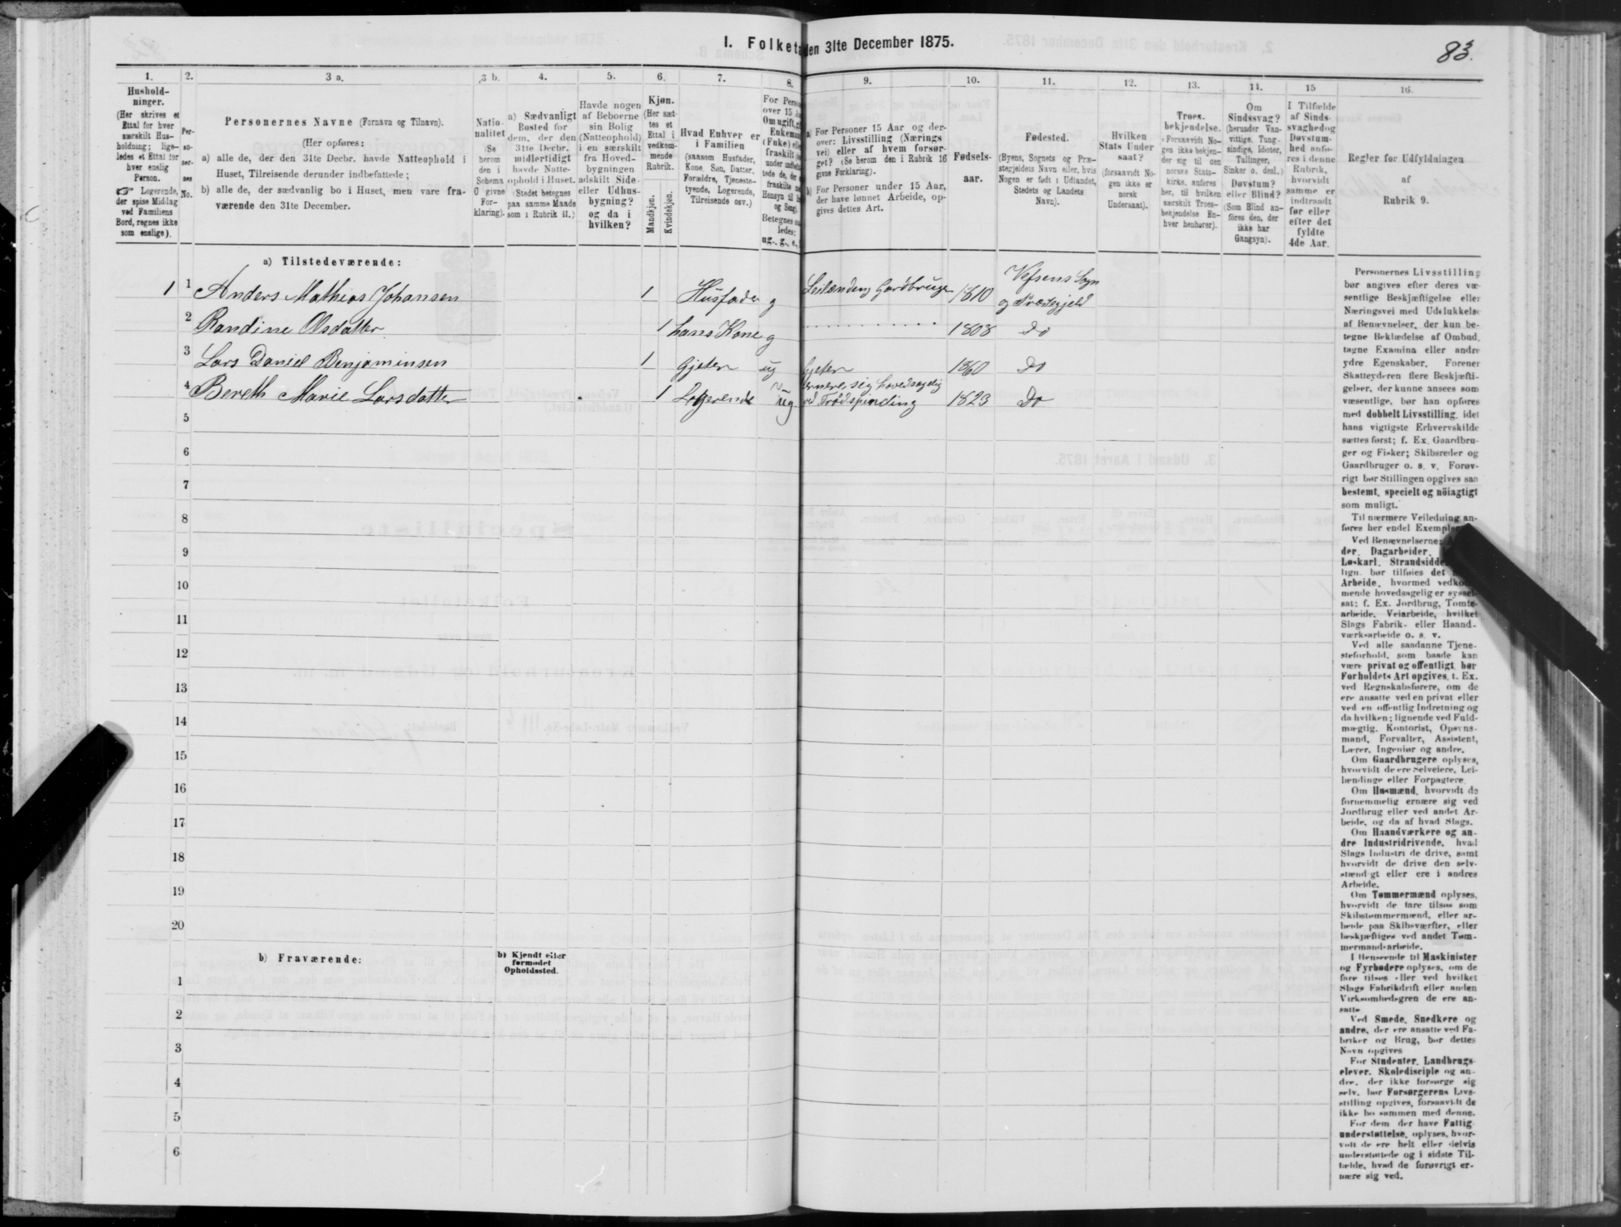 I. Folketa
den 31te December 1875.
83.
1.
2.
3 a.
3 b.
4.
5.
6.
7.
8.
9.
10.
11.
12.
13.
14.
15
16.
Hushold-
ninger.
(Her skrives et
Ettal for hver
særskilt Hus-
holdning; lige-
ledes et Ettal for
hver enslig
Person.
☞ Logerende,
der spise Middag
ved Familiens
Bord, regnes ikke
som enslige).
Per-
so-
ner-
nes
No.
Personernes Navne (Fornavn og Tilnavn).
(Her opføres:
a) alle de, der den 31te Decbr. havde Natteophold i
Huset, Tilreisende derunder indbefattede;
b) alle de, der sædvanlig bo i Huset, men vare fra-
værende den 31te December.
Natio-
nalitet
(Se
herom
den i
Schema
O givne
For-
klaring).
a) Sædvanligt
Bosted for
dem, der den
31te Decbr.
midlertidigt
havde Natte-
ophold i Huset.
(Stedet betegnes
paa samme Maade
som i Rubrik 11.)
Havde nogen
af Beboerne
sin Bolig
(Natteophold)
i en særskilt
fra Hoved-
bygningen
adskilt Side-
eller Udhus-
bygning?
og da i
hvilken?
Kjøn.
(Her sæt-
tes et
Ettal i
vedkom-
mende
Rubrik.
Mandkjøn.
Kvindekjøn.
Hvad Enhver er
i Familien
(saasom Husfader,
Kone, Søn, Datter,
Forældre, Tjeneste-
tyende, Logerende,
Tilreisende osv.)
For Perso
over 15
Om ugift,
Enkeman
(Enke) ell
fraskilt
a) For Personer 15 Aar og der-
over: Livsstilling (Nærings
vei) eller af hvem forsør-
get? (Se herom den i Rubrik 16
givne Forklaring).
b) For Personer under 15 Aar,
der have lønnet Arbeide, op-
gives dettes Art.
Fødsels-
aar.
Fødested.
(Byens, Sognets og Præ-
stegjeldets Navn eller, hvis
Nogen er født i Udlandet,
Stedets og Landets
Navn).
Hvilken
Stats Under
saat?
(forsaavidt No-
gen ikke er
norsk
Undersaat).
Troes-
bekjendelse.
(Forsaavidt No-
gen ikke bekjen-
der sig til den
norske Stats-
kirke, anføres
her, til hvilken
særskilt Troes-
bekjendelse En-
hver henhører).
Om
Sindssvag?
(herunder Van-
vittige, Tung-
sindige, Idioter,
Tullinger,
Sinker o. desl.)
Døvstum?
eller Blind?
(Som Blind an-
føres den, der
ikke har
Gangsyn).
I Tilfælde
af Sinds-
svaghed og
Døvstum-
hed anfø-
res i denne
Rubrik,
hvorvidt
samme er
indtraadt
før eller
efter det
fyldte
4de Aar.
Regler for Udfyldningen
af
Rubrik 9.
a) Tilstedeværende:
1 1 Anders Mathias Johansen 1 Husfader g Leilænding Gardbruge 1810 Vefsens Sogn og Præstegjeld
2 Randine Olsdatter 1 hans Kone g 1808 Do
3 Lars Daniel Benjaminsen 1 Gjeter ug Gjeter 1860 Do
4 Bereth Marie Larsdatter 1 Logerende ug ernere sig hovedsagelig ved Trådspinding 1823 Do
5
6
7
8
9
10
11
12
13
14
15
16
17
18
19
20
b) Fraværende:
b) Kjendt eller
formodet
Opholdssted.
1
2
3
4
5
6
Personernes Livsstilling
bør angives efter deres væ-
sentlige Beskjæftigelse eller
Næringsvei med Udelukkelse
af Benævnelser, der kun be-
tegne Beklædelse af Ombud,
tagne Examina eller andre
ydre Egenskaber. Forener
Skatteyderen flere Beskjæfti-
gelser, der kunne ansees som
væsentlige, bør han opføres
med dobbelt Livsstilling, idet
hans vigtigste Erhvervskilde
sættes først; f. Ex. Gaardbru-
ger og Fisker; Skibsreder og
Gaardbruger o. s. v. Forøv-
rigt bør Stillingen opgives saa
bestemt, specielt og nöiagtigt
som muligt.
Til nærmere Veiledning an-
føres her endel Exempl
Ved Benævnelserne:
der, Dagarbeider,
Løskarl, Strandsidde
lign. bør tilføies det
Arbeide, hvormed vedko
mende hovedsagelig er syssel-
sat; f. Ex. Jordbrug, Tomte-
arbeide, Veiarbeide, hvilket
Slags Fabrik- eller Haand-
værksarbeide o. s. v.
Ved alle saadanne Tjene-
steforhold, som baade kan
være privat og offentligt, bør
Forholdets Art opgives, t. Ex.
ved Regnskabsførere, om de
ere ansatte ved en privat eller
ved en offentlig Indretning og
da hvilken; lignende ved Fuld-
mægtig, Kontorist, Opsyns-
mand, Forvalter, Assistent,
Lærer, Ingeniør og andre.
Om Gaardbrugere oplyses,
hvorvidt de ere Selveiere, Lei-
lændinge eller Forpagtere.
Om Husmænd, hvorvidt de
fornemmelig ernære sig ved
Jordbrug eller ved andet Ar-
beide, og da af hvad Slags.
Om Haandværkere og an-
dre Industridrivende, hvad
Slags Industri de drive, samt
hvorvidt de drive den selv-
stændigt eller ere i andres
Arbeide.
Om Tømmermænd oplyses,
hvorvidt de fare tilsøs som
Skibstømmermænd, eller ar-
beide paa Skibsværfter, eller
beskjæftiges ved andet Tøm-
mermandsarbeide.
I Henseende til Maskinister
og Fyrbødere oplyses, om de
fare tilsøs eller ved hvilket
Slags Fabrikdrift eller anden
Virksomhedsgren de ere an-
satte.
Ved Smede, Snedkere og
andre, der ere ansatte ved Fa-
briker og Brug, bør dettes
Navn opgives.
For Studenter, Landbrugs-
elever, Skoledisciple og an-
dre, der ikke forsørge sig
selv, bør Forsørgerens Livs-
stilling opgives, forsaavidt de
ikke bo sammen med denne.
For dem, der have Fattig-
understøttelse, oplyses, hvor-
vidt de ere helt eller delvis
understøttede og i sidste Til-
fælde, hvad de forøvrigt er-
nære sig ved.